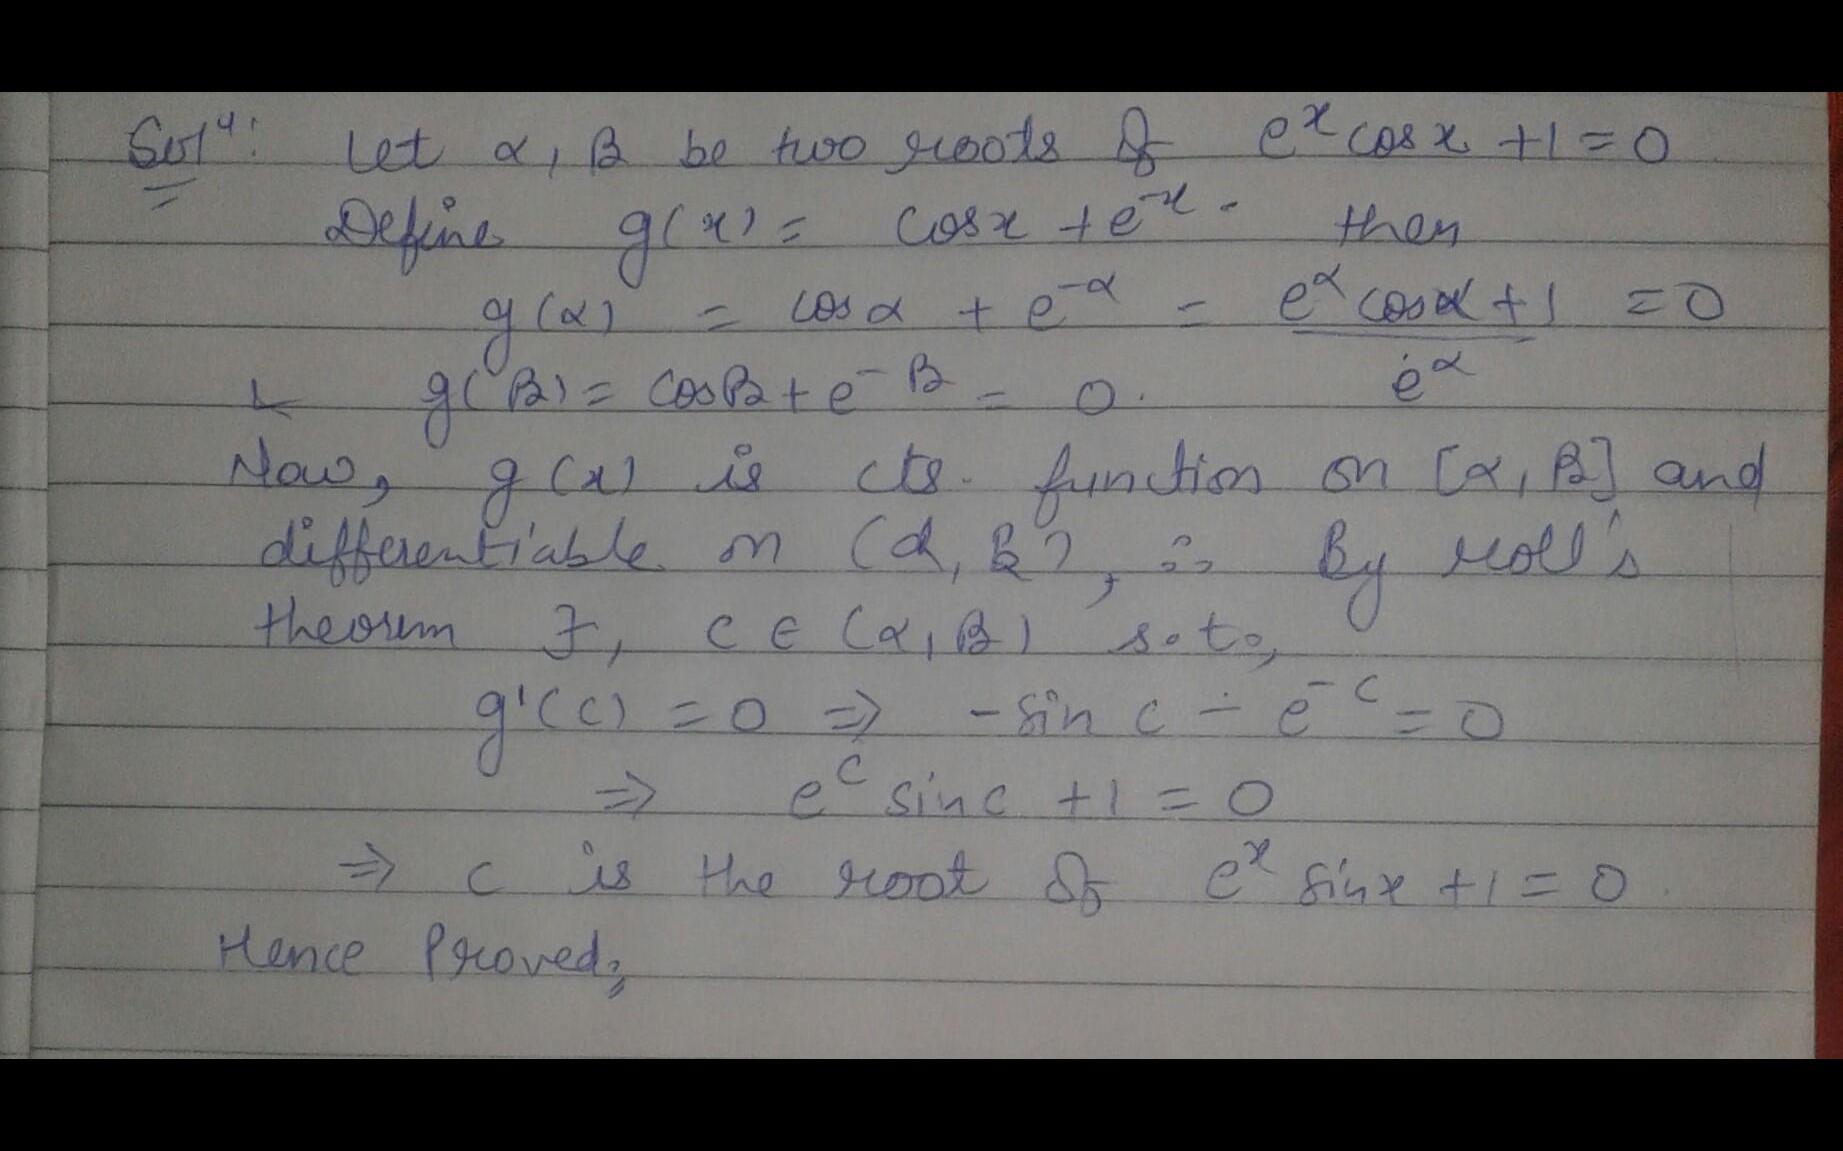 Solⁿ: Let α, β be two roots of eˣ cosx + 1 = 0
Define g(x) = cosx + e⁻ˣ. then
g(α) = cosα + e^-α = (e^α cosα + 1)/e^α = 0
& g(β) = cosβ + e^-β = 0.
Now, g(x) is cts. function on [α, β] and
differentiable on (α, β), ∴ By roll's
theorem ∃, c ∈ (α, β) s.t.,
g'(c) = 0 ⇒ -sin c - e^-c = 0
⇒ e^c sinc + 1 = 0
⇒ c is the root of eˣ sinx + 1 = 0.
Hence Proved,